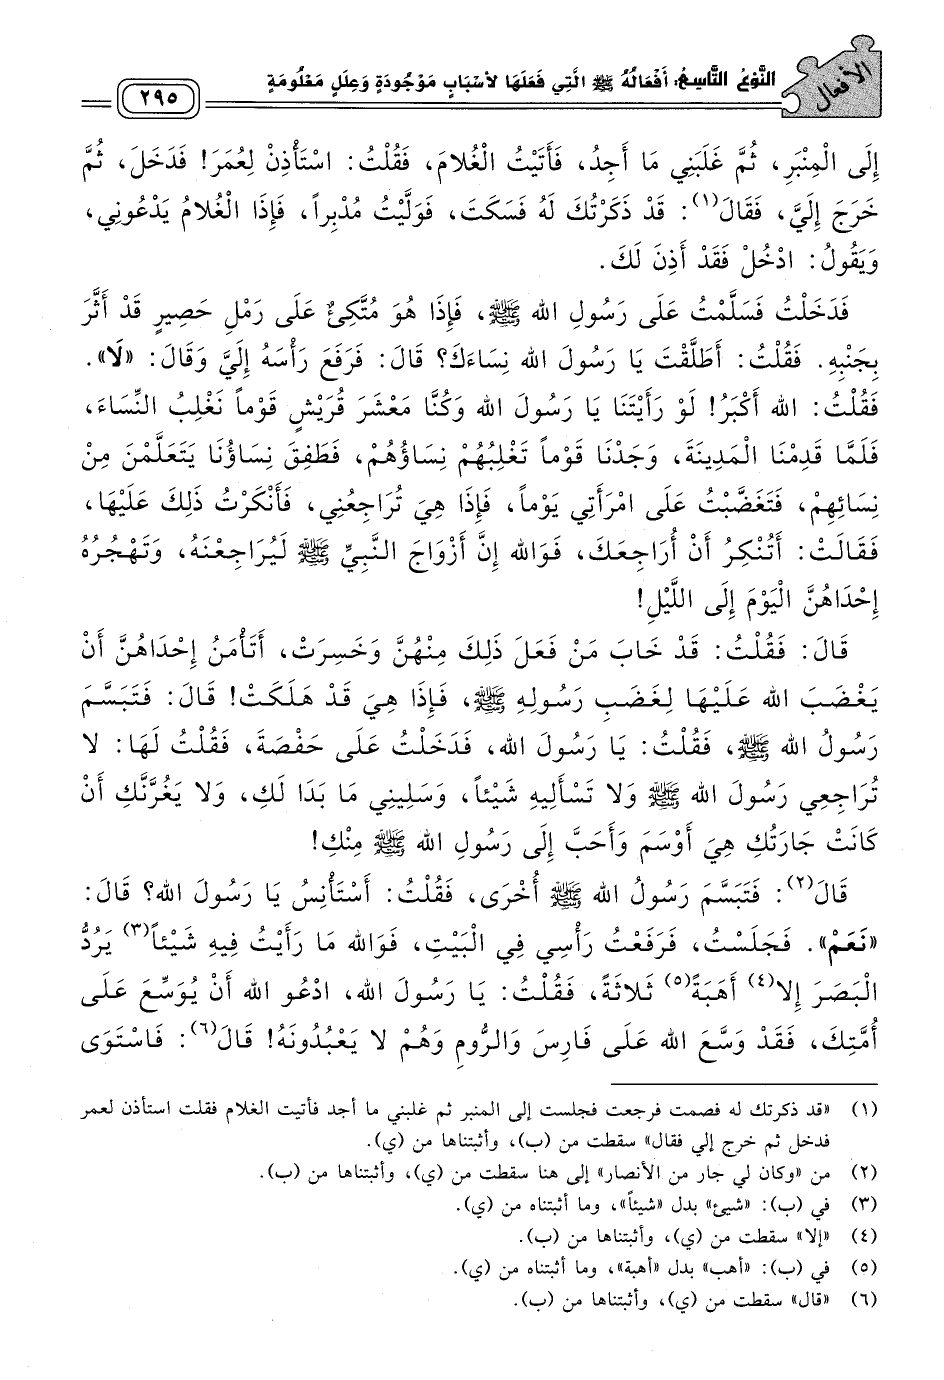 الأفعال
النَّوْعُ التَّاسِعُ: أَفْعَالُهُ ﷺ الَّتِي فَعَلَهَا لأَسْبَابٍ مَوْجُودَةٍ وَعِلَلٍ مَعْلُومَةٍ
٢٩٥
إِلَى الْمِنْبَرِ، ثُمَّ غَلَبَنِي مَا أَجِدُ، فَأَتَيْتُ الْغُلامَ، فَقُلْتُ: اسْتَأْذِنْ لِعُمَرَ! فَدَخَلَ، ثُمَّ
خَرَجَ إِلَيَّ، فَقَالَ(١): قَدْ ذَكَرْتُكَ لَهُ فَسَكَتَ، فَوَلَّيْتُ مُدْبِراً، فَإِذَا الْغُلامُ يَدْعُونِي،
وَيَقُولُ: ادْخُلْ فَقَدْ أَذِنَ لَكَ.
فَدَخَلْتُ فَسَلَّمْتُ عَلَى رَسُولِ الله ﷺ، فَإِذَا هُوَ مُتَّكِئٌ عَلَى رَمْلِ حَصِيرٍ قَدْ أَثَّرَ
بِجَنْبِهِ. فَقُلْتُ: أَطَلَّقْتَ يَا رَسُولَ الله نِسَاءَكَ؟ قَالَ: فَرَفَعَ رَأْسَهُ إِلَيَّ وَقَالَ: «لَا».
فَقُلْتُ: الله أَكْبَرُ! لَوْ رَأَيْتَنَا يَا رَسُولَ الله وَكُنَّا مَعْشَرَ قُرَيْشٍ قَوْماً نَغْلِبُ النِّسَاءَ،
فَلَمَّا قَدِمْنَا الْمَدِينَةَ، وَجَدْنَا قَوْماً تَغْلِبُهُمْ نِسَاؤُهُمْ، فَطَفِقَ نِسَاؤُنَا يَتَعَلَّمْنَ مِنْ
نِسَائِهِمْ، فَتَغَضَّبْتُ عَلَى امْرَأَتِي يَوْماً، فَإِذَا هِيَ تُرَاجِعُنِي، فَأَنْكَرْتُ ذَلِكَ عَلَيْهَا،
فَقَالَتْ: أَتُنْكِرُ أَنْ أُرَاجِعَكَ، فَوَالله إِنَّ أَزْوَاجَ النَّبِيِّ ﷺ لَيُرَاجِعْنَهُ، وَتَهْجُرُهُ
إِحْدَاهُنَّ الْيَوْمَ إِلَى اللَّيْلِ!
قَالَ: فَقُلْتُ: قَدْ خَابَ مَنْ فَعَلَ ذَلِكَ مِنْهُنَّ وَخَسِرَتْ، أَتَأْمَنُ إِحْدَاهُنَّ أَنْ
يَغْضَبَ الله عَلَيْهَا لِغَضَبِ رَسُولِهِ ﷺ، فَإِذَا هِيَ قَدْ هَلَكَتْ! قَالَ: فَتَبَسَّمَ
رَسُولُ الله ﷺ، فَقُلْتُ: يَا رَسُولَ الله، فَدَخَلْتُ عَلَى حَفْصَةَ، فَقُلْتُ لَهَا: لا
تُرَاجِعِي رَسُولَ الله ﷺ وَلا تَسْأَلِيهِ شَيْئاً، وَسَلِينِي مَا بَدَا لَكِ، وَلا يَغُرَّنَّكِ أَنْ
كَانَتْ جَارَتُكِ هِيَ أَوْسَمَ وَأَحَبَّ إِلَى رَسُولِ الله ﷺ مِنْكِ!
قَالَ(٢): فَتَبَسَّمَ رَسُولُ الله ﷺ أُخْرَى، فَقُلْتُ: أَسْتَأْنِسُ يَا رَسُولَ الله؟ قَالَ:
«نَعَمْ». فَجَلَسْتُ، فَرَفَعْتُ رَأْسِي فِي الْبَيْتِ، فَوَالله مَا رَأَيْتُ فِيهِ شَيْئاً(٣) يَرُدُّ
الْبَصَرَ إِلا(٤) أَهَبَةً(٥) ثَلاثَةً، فَقُلْتُ: يَا رَسُولَ الله، ادْعُو الله أَنْ يُوَسِّعَ عَلَى
أُمَّتِكَ، فَقَدْ وَسَّعَ الله عَلَى فَارِسَ وَالرُّومِ وَهُمْ لا يَعْبُدُونَهُ! قَالَ(٦): فَاسْتَوَى
(١) «قد ذكرتك له فصمت فرجعت فجلست إلى المنبر ثم غلبني ما أجد فأتيت الغلام فقلت استأذن لعمر
فدخل ثم خرج إلي فقال» سقطت من (ب)، وأثبتناها من (ي).
(٢) من «وكان لي جار من الأنصار» إلى هنا سقطت من (ي)، وأثبتناها من (ب).
(٣) في (ب): «شيئ» بدل «شيئاً»، وما أثبتناه من (ي).
(٤) «إلا» سقطت من (ي)، وأثبتناها من (ب).
(٥) في (ب): «أهب» بدل «أهبة»، وما أثبتناه من (ي).
(٦) «قال» سقطت من (ي)، وأثبتناها من (ب).